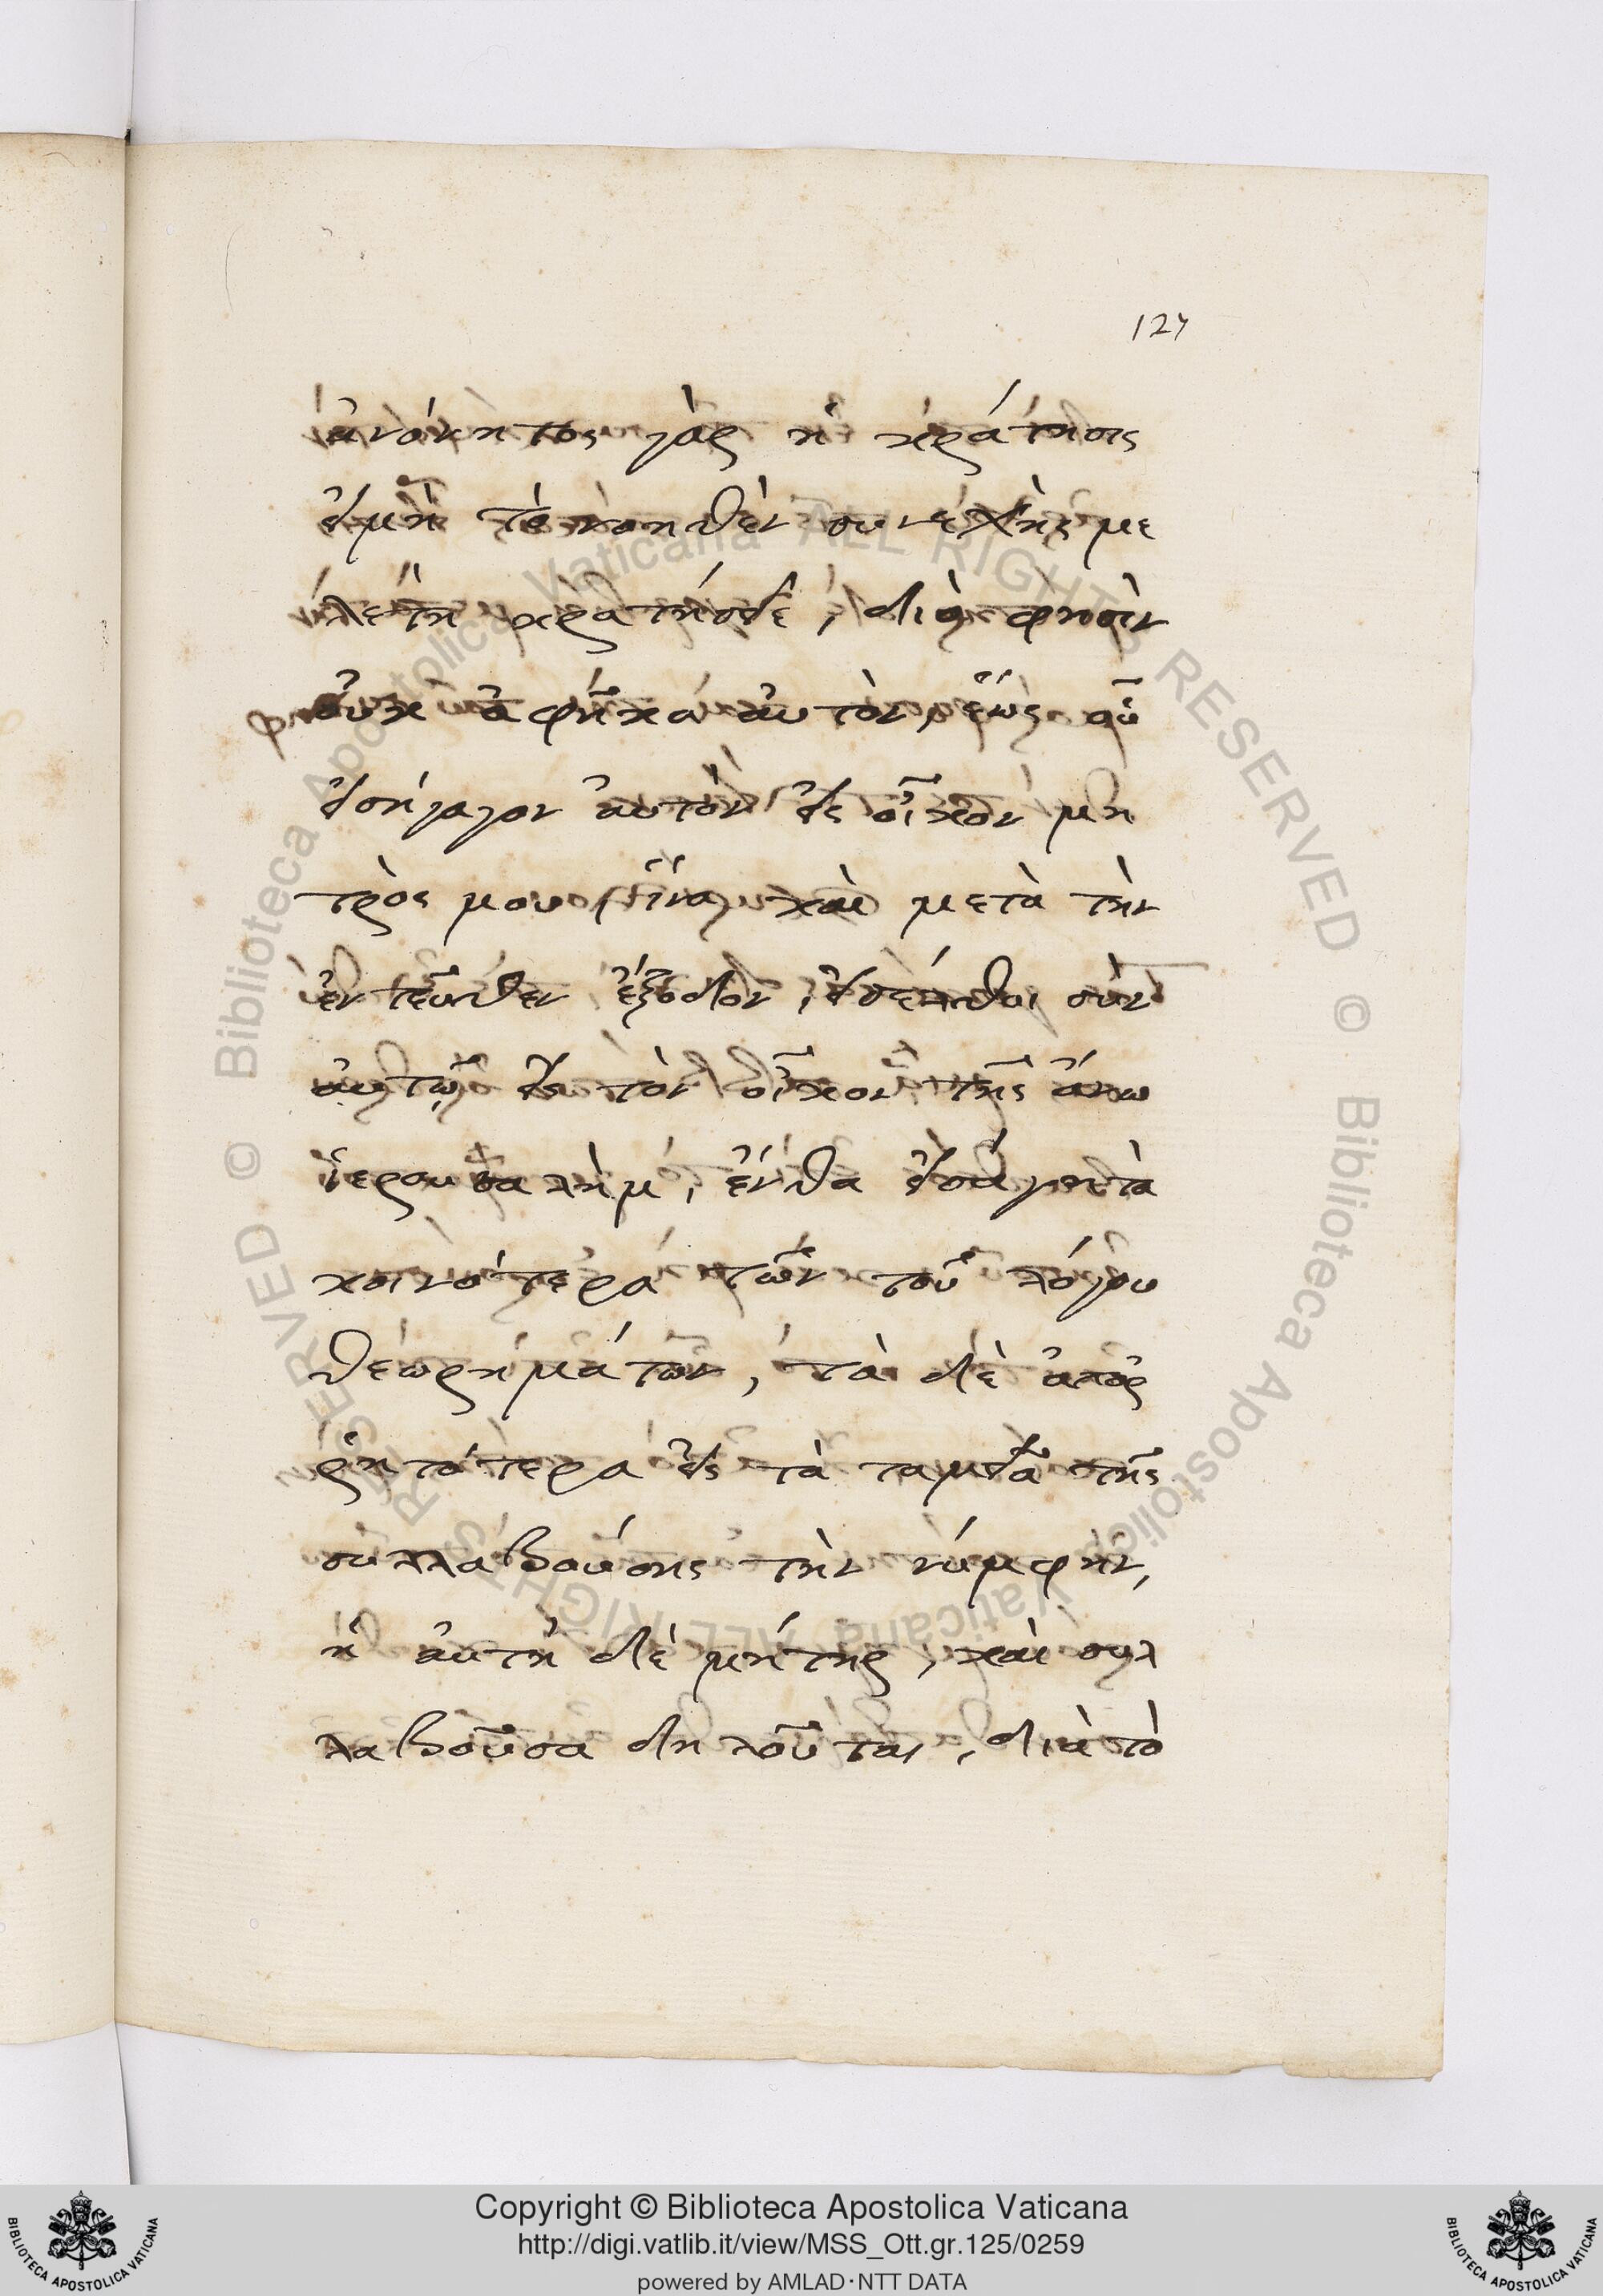 127
ἀνόνητος γὰρ ἡ κράτησις
εἰμὴ τὸ νοηθὲν συνεχὴς με
λέτη κρατήσει, διό φησὶν
οὐκ ἀφῆκα αὐτὸν, ἕως οὗ
εἰσήγαγον αὐτὸν εἰς οἶκον μη
τρὸς μου, ἵνα καὶ μετὰ τὴν
ἐντεῦθεν ἔξοδον, εἰσέλθοι σὺν
αὐτῷ εἰς τὸν οἶκον τῆς ἄνω
ἱερουσαλὴμ, ἔνθα εἰσάγει τὰ
κοινότερα τῶν τοῦ λόγου
θεωρημάτων, τὰ δὲ ἀπορ
ρητότερα εἰς τὰ ταμεῖα τῆς
συλλαβούσης τὴν νύμφην,
ἡ αὐτὴ δὲ μήτηρ, καὶ συλ
λαβοῦσα δηλοῦται, διὰ τὸ
Copyright © Biblioteca Apostolica Vaticana
http://digi.vatlib.it/view/MSS_Ott.gr.125/0259
powered by AMLAD·NTT DATA
BIBLIOTECA APOSTOLICA VATICANA
BIBLIOTECA APOSTOLICA VATICANA
© Biblioteca Apostolica Vaticana ALL RIGHTS RESERVED
© Biblioteca Apostolica Vaticana ALL RIGHTS RESERVED